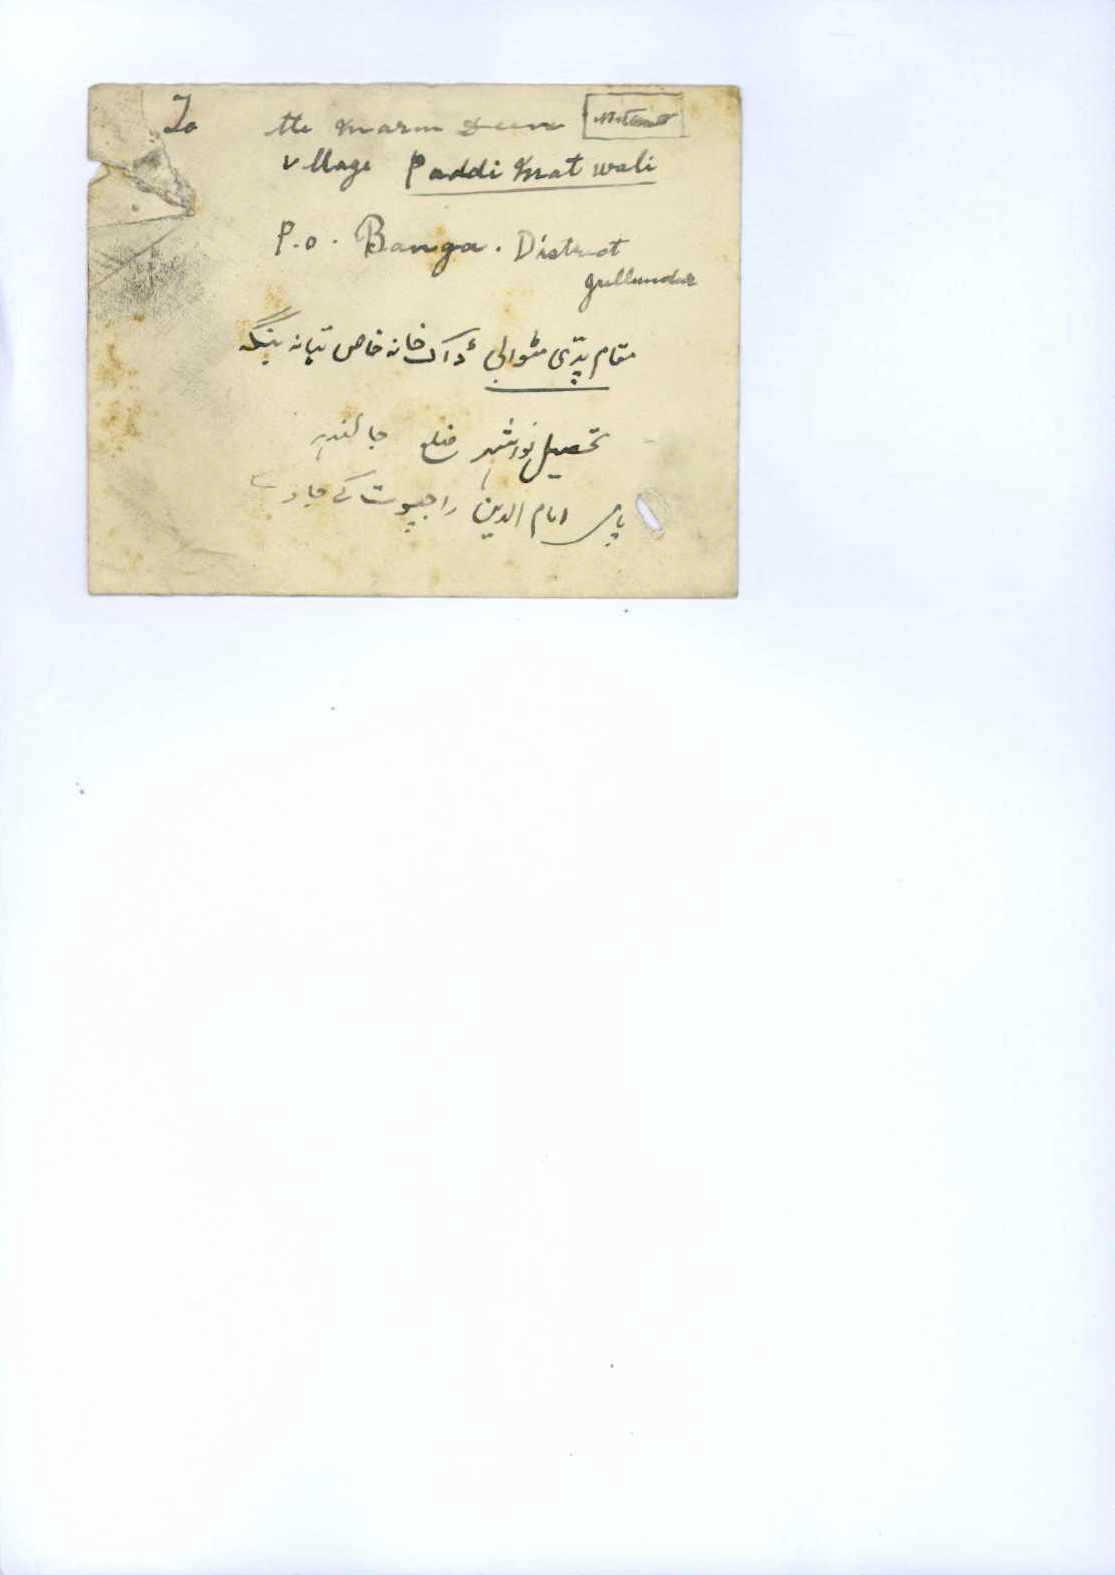 To
the Imam Deen
Village Paddi Mat wali
P.o. Banga. District
Jullundur
مقام پدّی مٹوالی ڈاک خانہ خاص تہانہ بنگہ
تحصیل نواشہر ضلع جالندہر
پاس امام الدین راجپوت کے جاوے